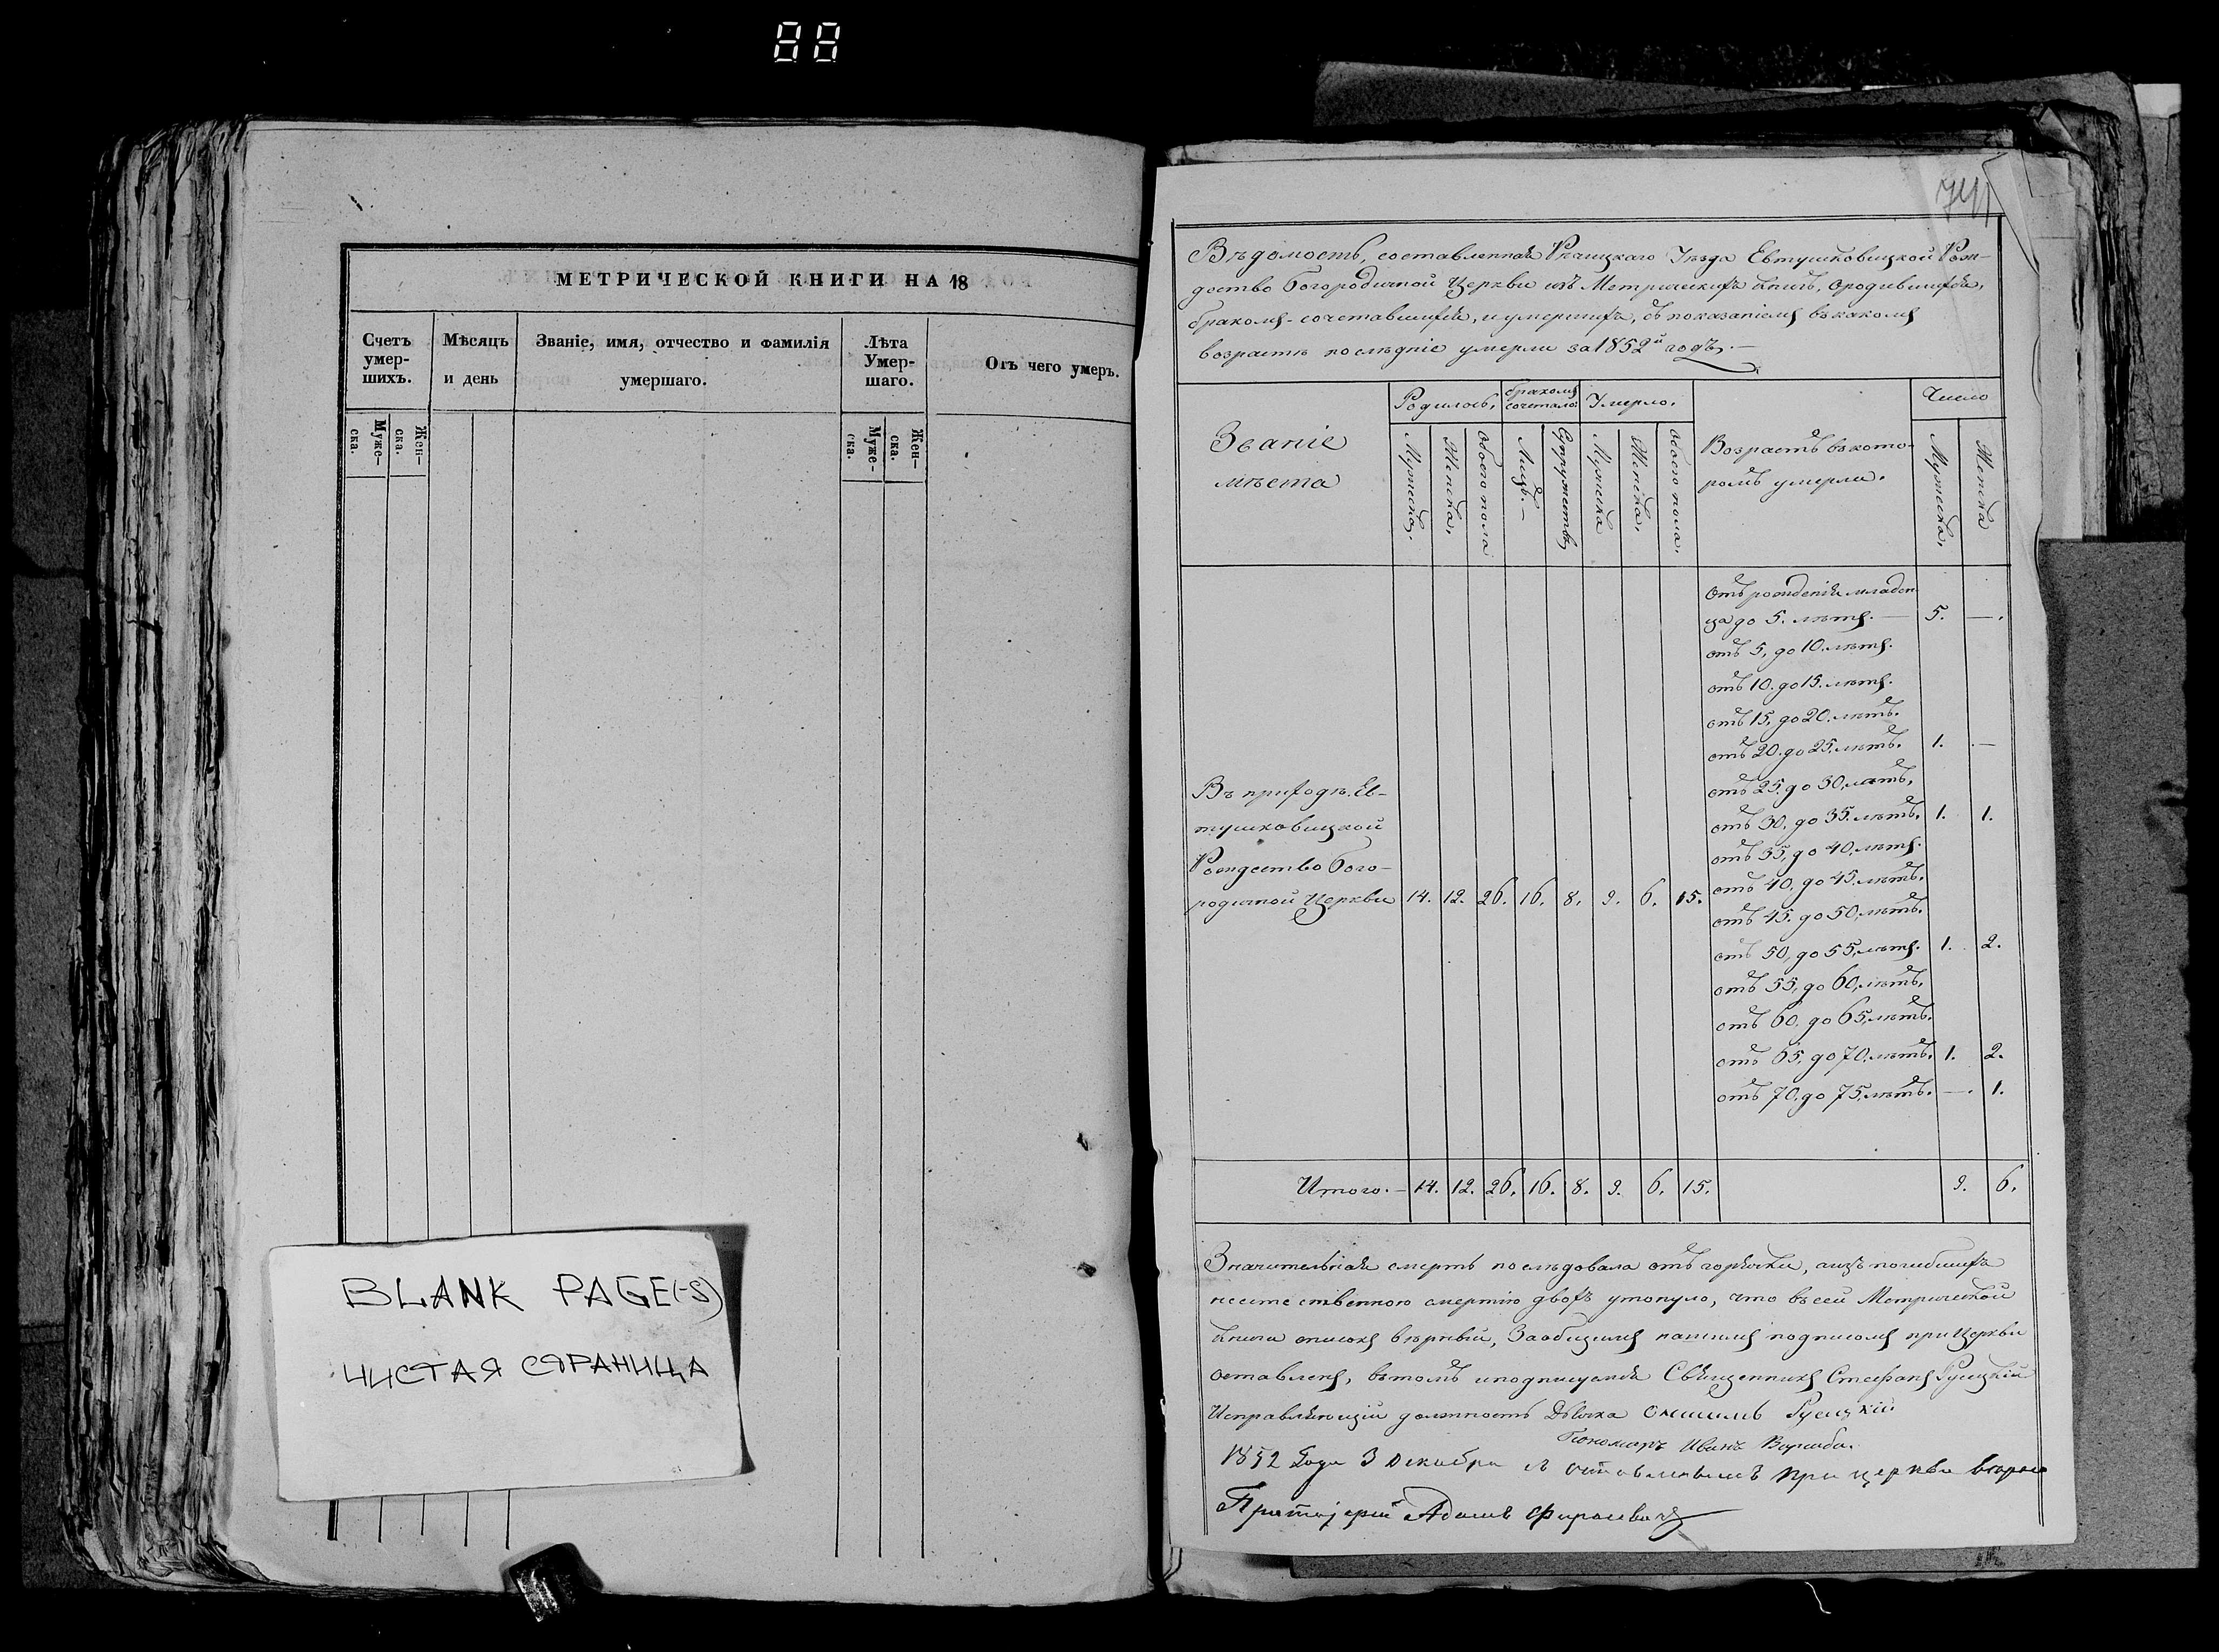 88
МЕТРИЧЕСКОЙ КНИГИ НА 18
Счетъ умер-шихъ.
Мѣсяцъ и день
Званіе, имя, отчество и фамилія умершаго.
Лѣта Умер-шаго.
Отъ чего умеръ.
Муже-ска.
Жен-ска.
Муже-ска.
Жен-ска.
BLANK PAGE(-S)
ЧИСТАЯ СТРАНИЦА
Вѣдомость, составленная Рѣчицкаго Уѣзда Евтушковицкой Рож-
дество Богородичной Церкви изъ Метрическихъ книгъ, о родившихся,
бракомъ-сочетавшихся, и умершихъ, съ показаніемъ въ какомъ
возрастѣ послѣдніе умерли за 1852й годъ.—
Званіе мѣста
Родилось,
бракомъ сочетало:
Умерло.
Возрастъ въ кото-
ромъ умерли.
Число
Мужеска.
Женска,
Обоего пола
Лицъ.—
Супружествъ
Мужеска
Женска,
Обоего пола.
Мужеска,
Женска
отъ рожденія младен
ца до 5. лѣтъ.— 5. —.
отъ 5, до 10. лѣтъ.
отъ 10. до 15. лѣтъ.
отъ 15, до 20. лѣтъ.
отъ 20. до 25. лѣтъ. 1. —
отъ 25. до 30, лѣтъ,
отъ 30. до 35. лѣтъ, 1. 1.
отъ 35, до 40, лѣтъ.
отъ 40, до 45, лѣтъ.
отъ 45. до 50, лѣтъ.
отъ 50, до 55, лѣтъ. 1. 2.
отъ 55, до 60, лѣтъ,
отъ 60. до 65, лѣтъ.
отъ 65. до 70, лѣтъ, 1. 2.
отъ 70, до 75, лѣтъ. —. 1.
Въ приходѣ Ев-
тушковицкой
Рождество Бого-
родичной Церкви 14. 12. 26. 16. 8. 9. 6. 15.
Итого.— 14. 12. 26. 16. 8. 9. 6. 15. 9. 6.
Значительная смерть послѣдовала отъ горячки, а изъ погибшихъ
неестественною смертію двохъ утонуло, что въ сей Метрической
книги списокъ вѣрный, За общимъ нашимъ подписомъ при Церкви
оставленъ, въ томъ и подписуемся Священникъ Стефанъ
Исправляющій должность Дьячка
Пономарь Иванъ
1852 Года 3 Декабря съ оставленнымъ при церкви
Протоіерей Адамъ